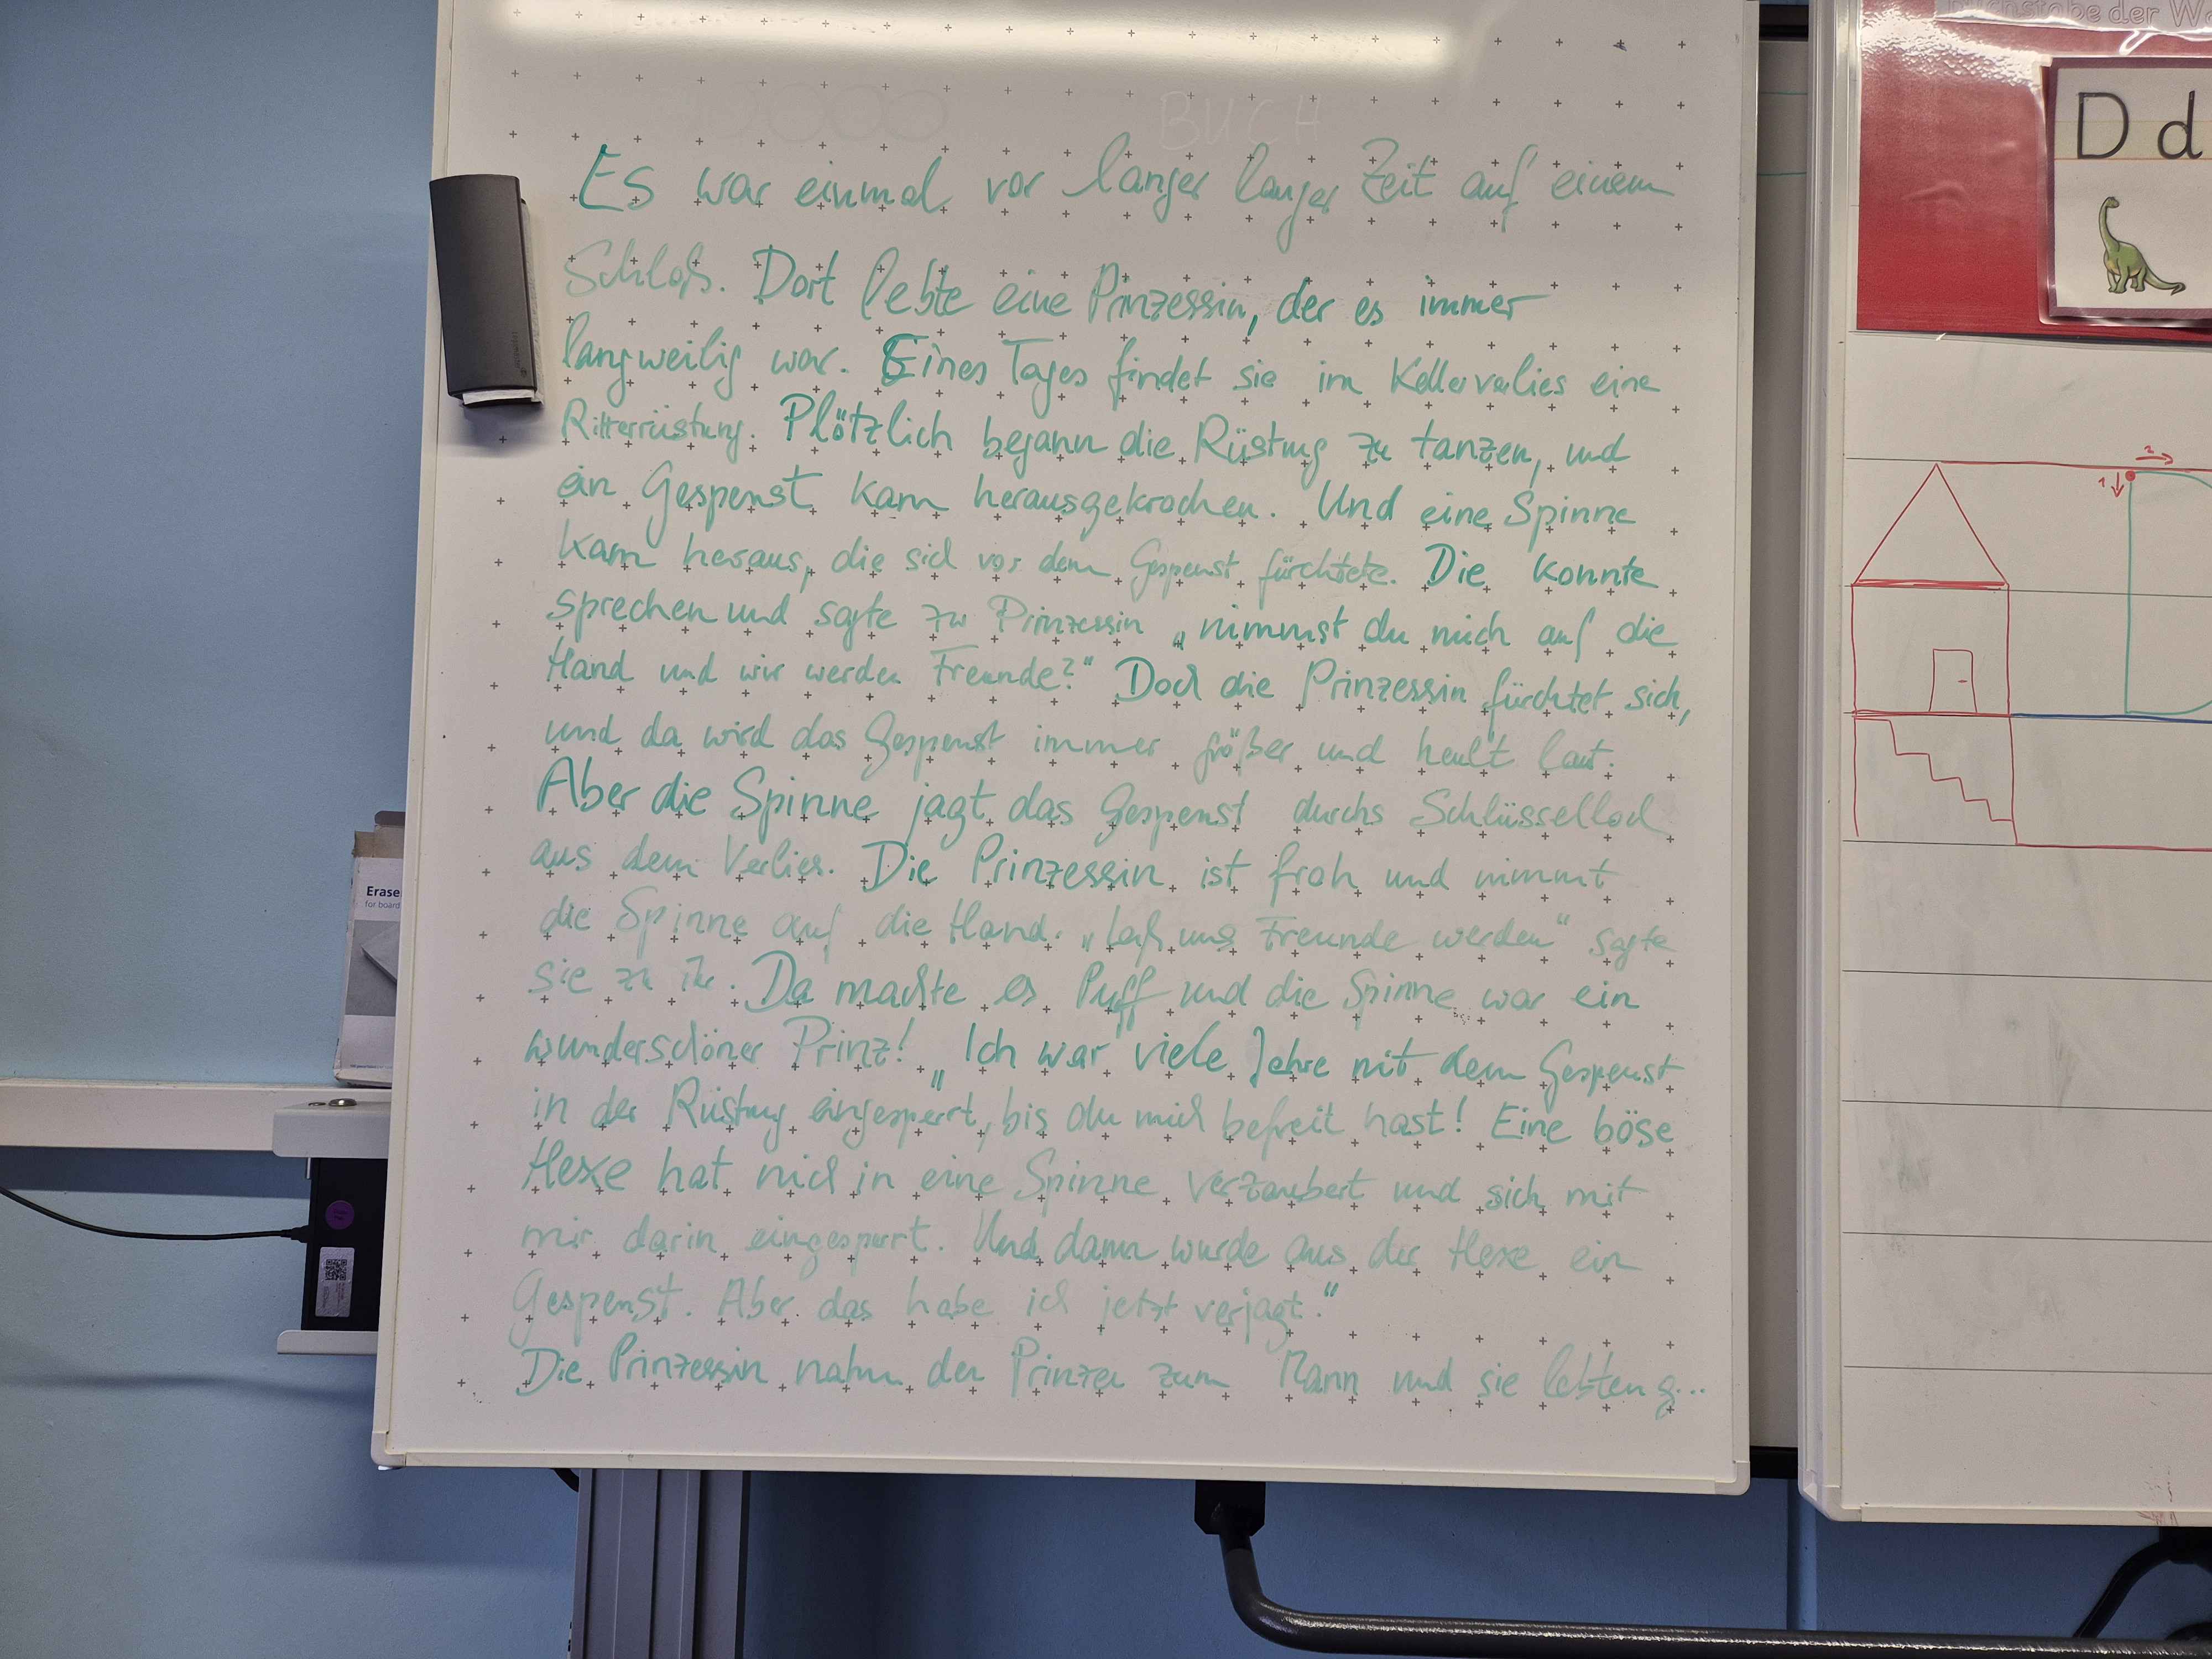 BUCH
Es war einmal vor langer langer Zeit auf einem
Schloß. Dort lebte eine Prinzessin, der es immer
langweilig war. Eines Tages findet sie im Kellerverlies eine
Ritterrüstung. Plötzlich begann die Rüstung zu tanzen, und
ein Gespenst kam herausgekrochen. Und eine Spinne
kam heraus, die sich vor dem Gespenst fürchtete. Die konnte
sprechen und sagte zur Prinzessin „nimmst du mich auf die
Hand und wir werden Freunde?“ Doch die Prinzessin fürchtet sich,
und da wird das Gespenst immer größer und heult laut.
Aber die Spinne jagt das Gespenst durchs Schlüsselloch
aus dem Verlies. Die Prinzessin ist froh und nimmt
die Spinne auf die Hand. „Laß uns Freunde werden“ sagte
sie zu ihr. Da machte es Puff und die Spinne war ein
wunderschöner Prinz! „Ich war viele Jahre mit dem Gespenst
in der Rüstung eingesperrt, bis du mich befreit hast! Eine böse
Hexe hat mich in eine Spinne verzaubert und sich mit
mir darin eingesperrt. Und dann wurde aus der Hexe ein
Gespenst. Aber das habe ich jetzt verjagt.“
Die Prinzessin nahm den Prinzen zum Mann und sie lebten g...
Erase
for board
Buchstabe der Wo
D d
1
2